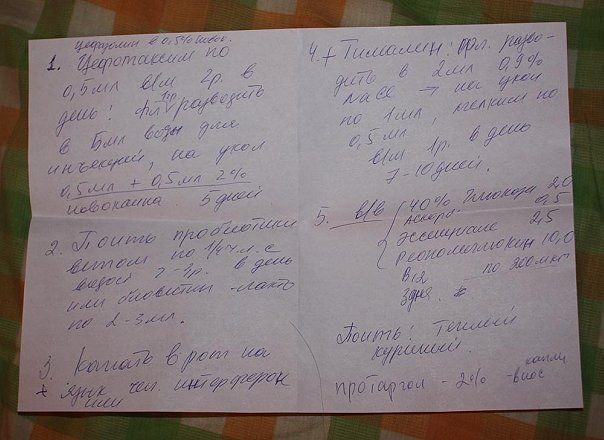 Цефазолин в 0,5% новок.
1. Цефотаксим по
0,5 мл в/м 2р. в
день! фл 1гр. разводить
в 5мл воды для
инъекций, на укол
0,5мл + 0,5мл 2%
новокаина. 5 дней
2. Поить пробиотики
ветом по 1/4 ч.л. с
водой 2-3р. в день
или -лакт
по 2-3 мл.
3. Капать в рот на
+ язык чел. интерферон
или
4. + Тималин! фл. разво-
дить в 2мл 0,9%
NaCl → на укол
по 1мл, мелким по
0,5мл
в/м 1р. в день
7-10 дней.
5. в/в 40% Глюкоза 20
Аскорб. 0,5
Эссенциале 2,5
Реополиглюкин 10,0
В12 по 200мкг
3 дня.
Поить! Теплый
куриный.
протаргол - 2% - в нос
капли